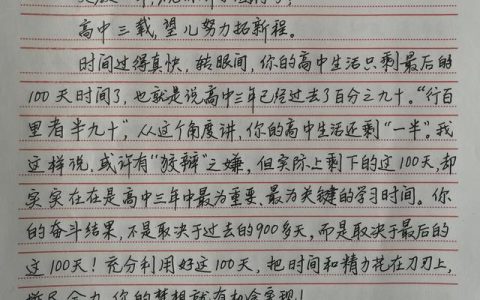 高中三载,望儿努力拓新程。
时间过得真快,转眼间,你的高中生活只剩最后的
100天时间了,也就是说高中三年已经过去了百分之九十。“行百
里者半九十”,从这个角度讲,你的高中生活还剩“一半”。我
这样说,或许有“狡辩”之嫌,但实际上剩下的这100天,却
实实在在是高中三年中最为重要、最为关键的学习时间。你
的奋斗结果,不是取决于过去的900多天,而是取决于最后的
这100天!充分利用好这100天,把时间和精力花在刀刃上,
你的梦想就有机会实现!